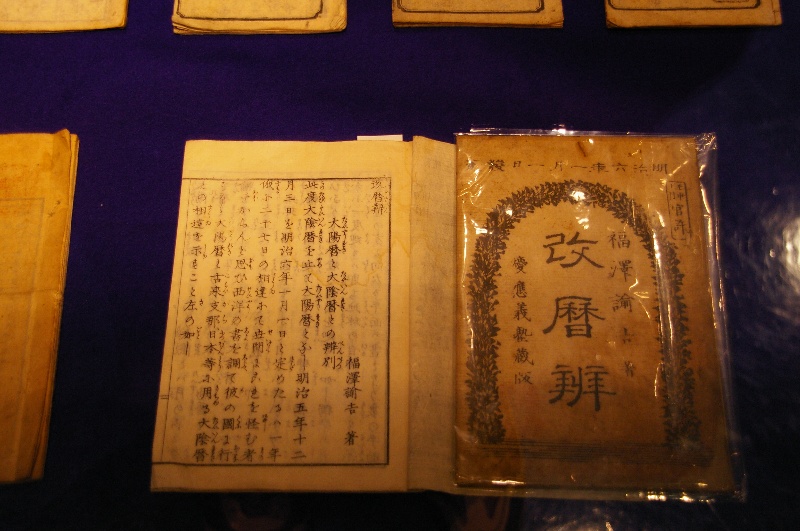 明治六年一月一日發
官許
福澤諭吉著
改暦辨
慶應義塾蔵版
改暦辨
福澤諭吉 著
太陽暦と太陰暦との辨別
此度大陰暦を止て大陽暦となし明治五年十二
月三日を明治六年一月一日と定めたるハ一年
俄に二十七日の相違にて世間にこれを怪む者
も多からんと思ひ西洋の書を調て彼の國に行
はるゝ太陽暦と古来支那日本等に用る大陰暦
との相違を示すこと左の如し